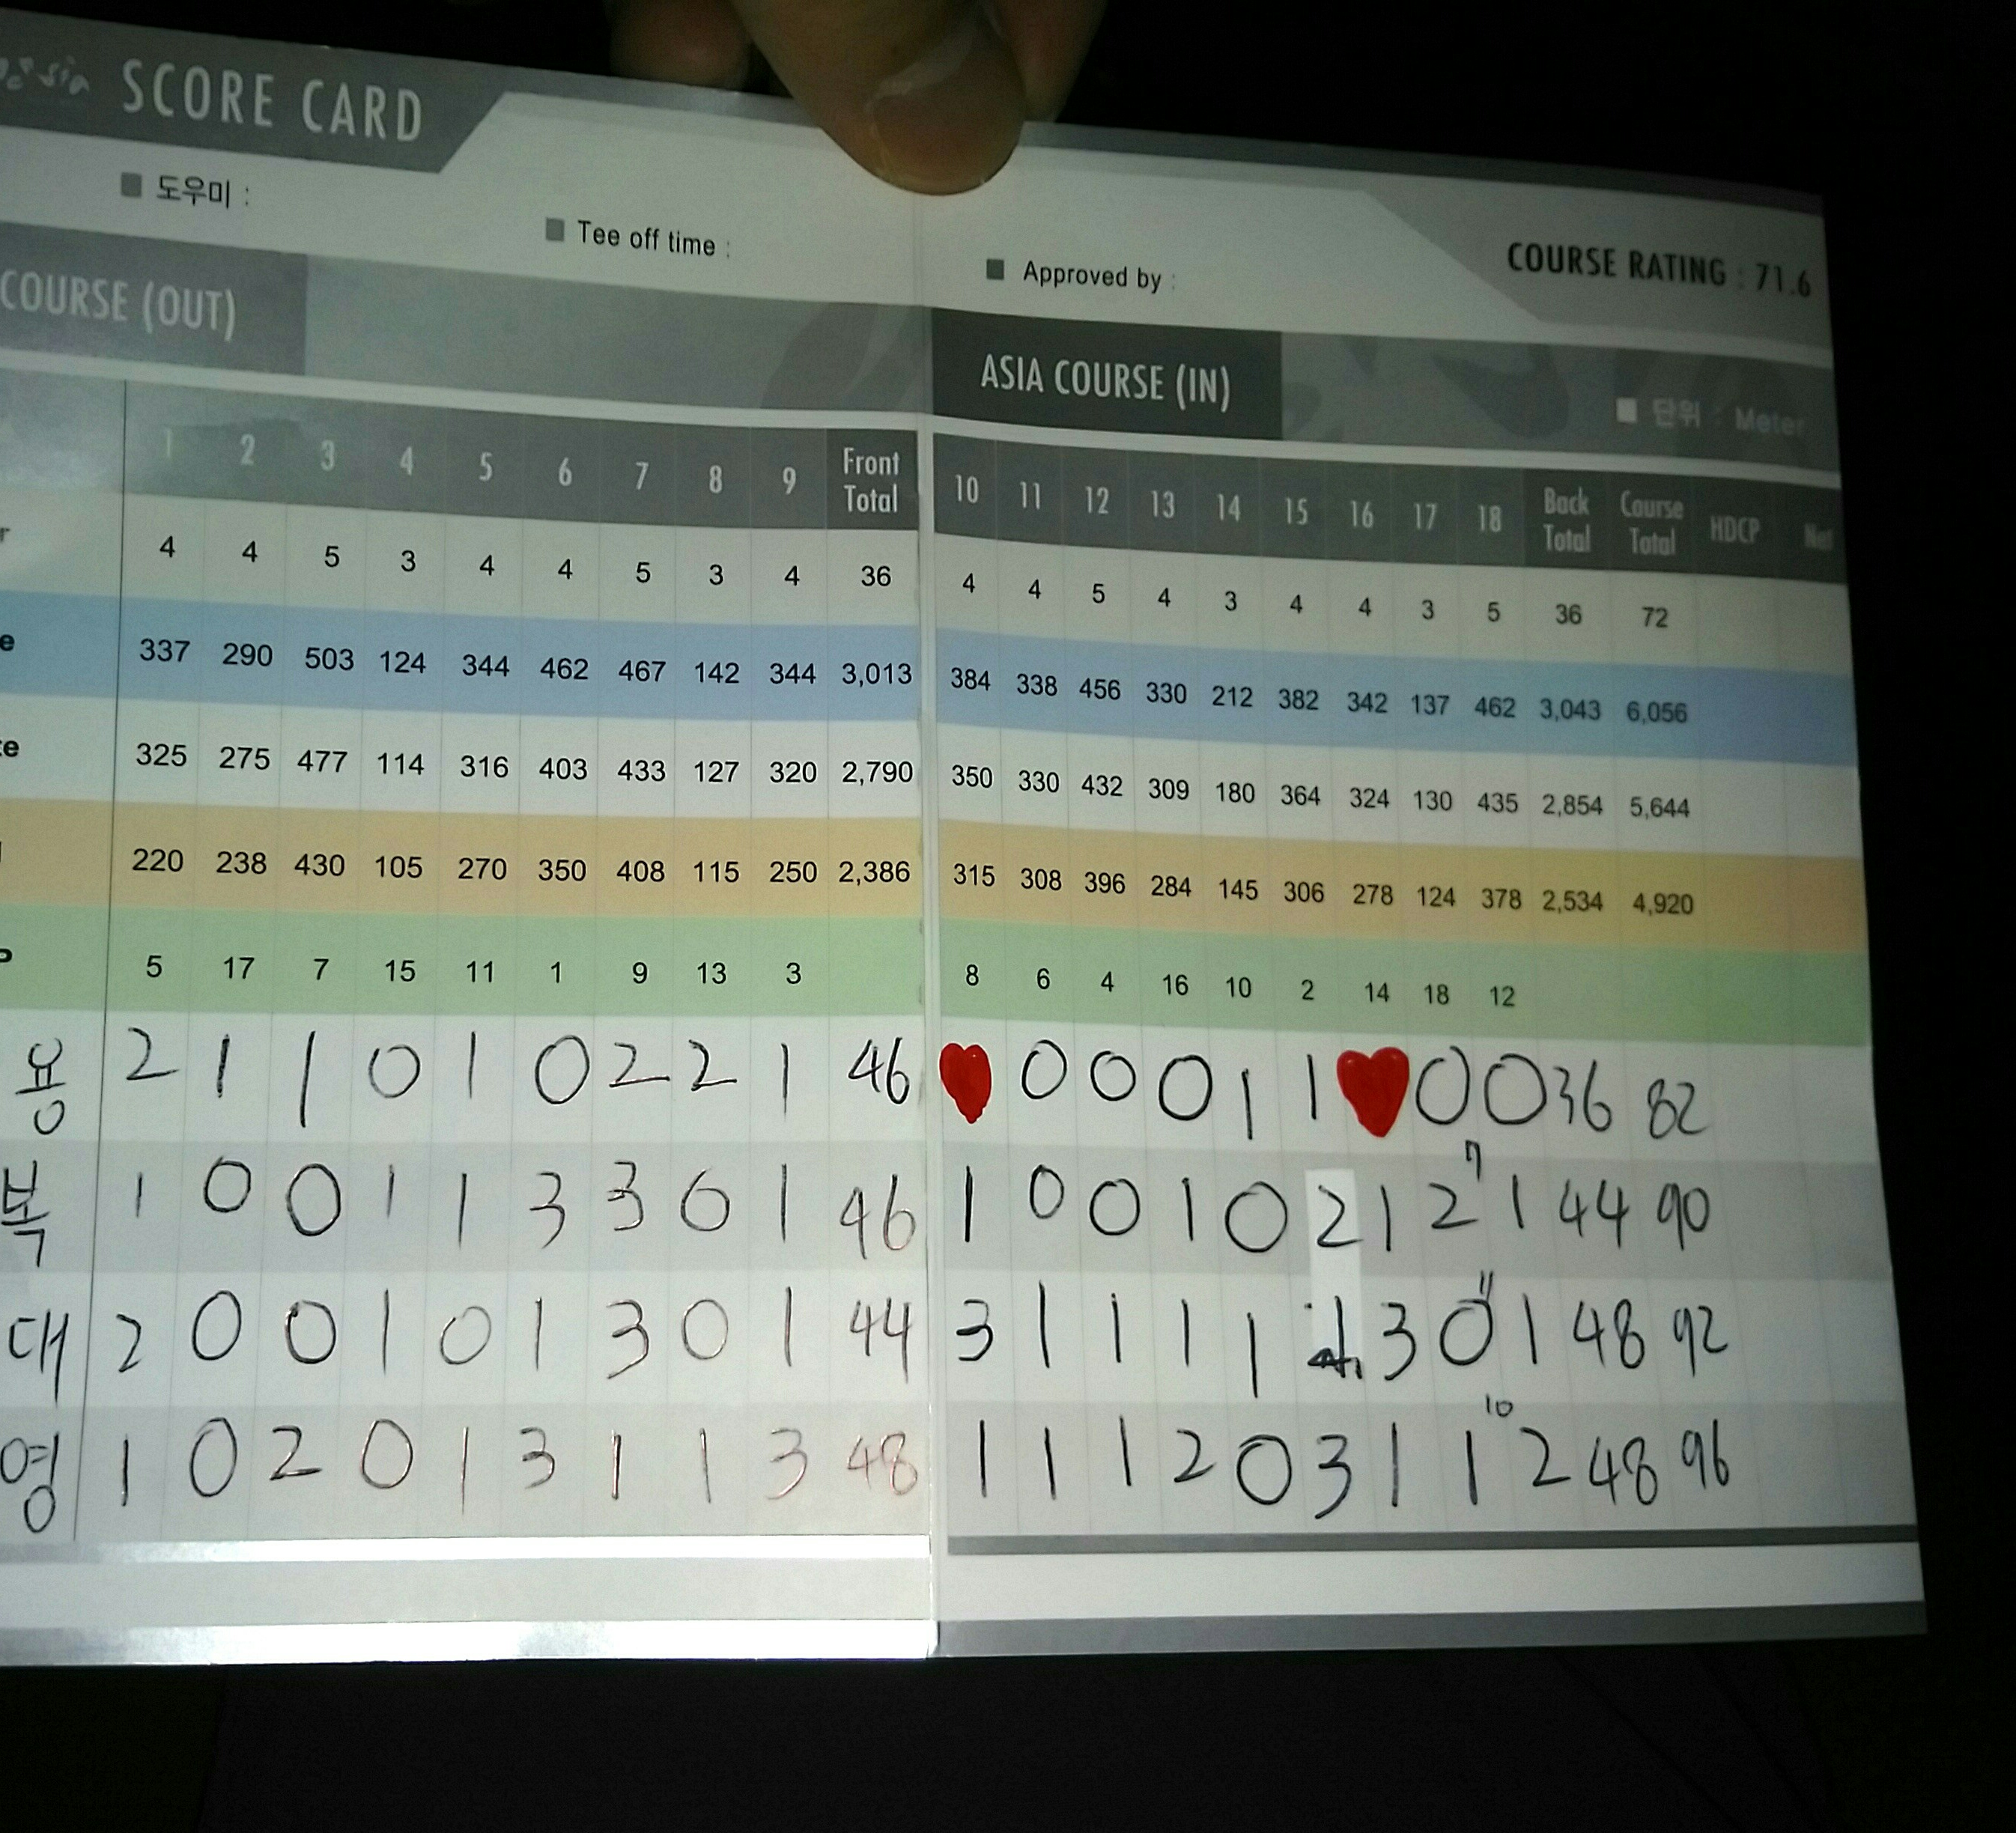 SCORE CARD
도우미 :
Tee off time :
Approved by :
COURSE RATING : 71.6
COURSE (OUT)
ASIA COURSE (IN)
단위 : Meter
1 2 3 4 5 6 7 8 9 Front Total 10 11 12 13 14 15 16 17 18 Back Total Course Total HDCP Net
4 4 5 3 4 4 5 3 4 36 4 4 5 4 3 4 4 3 5 36 72
337 290 503 124 344 462 467 142 344 3,013 384 338 456 330 212 382 342 137 462 3,043 6,056
325 275 477 114 316 403 433 127 320 2,790 350 330 432 309 180 364 324 130 435 2,854 5,644
220 238 430 105 270 350 408 115 250 2,386 315 308 396 284 145 306 278 124 378 2,534 4,920
5 17 7 15 11 1 9 13 3 8 6 4 16 10 2 14 18 12
용 2 1 1 0 1 0 2 2 1 46 0 0 0 1 1 0 0 36 82
복 1 0 0 1 1 3 3 0 1 46 1 0 0 1 0 2 1 2 7 1 44 90
대 2 0 0 1 0 1 3 0 1 44 3 1 1 1 1 3 0 11 1 48 92
영 1 0 2 0 1 3 1 1 3 48 1 1 1 2 0 3 1 1 10 2 48 96